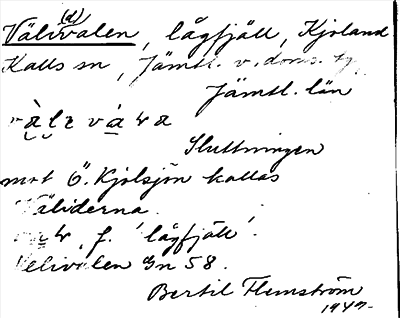 Välivålen, lågfjäll, Kjoland
(d)
Kalls sn, Jämtl. v. doms.
Jämtl. län
Sluttningen
mot Ö. Kjolsjön kallas
Väliderna.
f. 'lågfjäll'.
Velivålen Gn 58.
Bertil Flemström
1947.